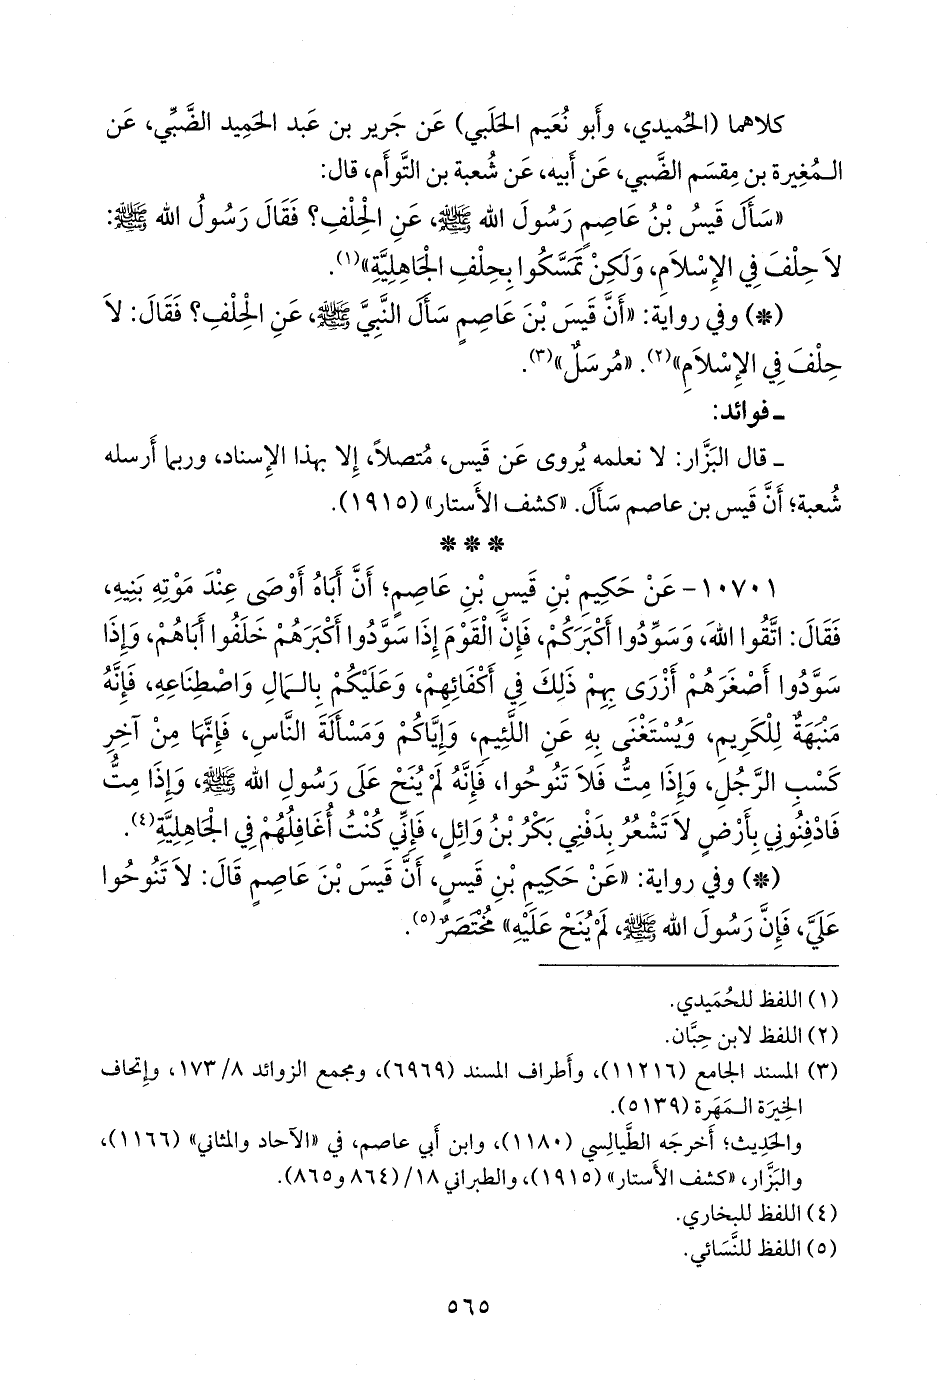 كلاهما (الحُميدي، وأَبو نُعَيم الحَلَبي) عَن جَرير بن عَبد الحَمِيد الضَّبِّي، عَن
المُغِيرة بن مِقسَم الضَّبي، عَن أَبيه، عَن شُعبة بن التَّوأَم، قال:
«سَأَلَ قَيسُ بْنُ عَاصِمٍ رَسُولَ الله ﷺ، عَنِ الْحِلْفِ؟ فَقَالَ رَسُولُ الله ﷺ:
لاَ حِلْفَ فِي الإِسْلاَمِ، وَلَكِنْ تَمَسَّكُوا بِحِلْفِ الْجَاهِلِيَّةِ»(١).
(*) وفي رواية: «أَنَّ قَيسَ بْنَ عَاصِمٍ سَأَلَ النَّبِيَّ ﷺ، عَنِ الْحِلْفِ؟ فَقَالَ: لاَ
حِلْفَ فِي الإِسْلاَمِ»(٢). «مُرسَلٌ»(٣).
ـ فوائد:
ـ قال البَزَّار: لا نعلمه يُروى عَن قَيس، مُتصلاً، إِلا بهذا الإِسناد، وربما أَرسله
شُعبة؛ أَنَّ قَيس بن عاصم سَأَلَ. «كشف الأَستار» (١٩١٥).
* * *
١٠٧٠١- عَنْ حَكِيمِ بْنِ قَيسِ بْنِ عَاصِمٍ؛ أَنَّ أَبَاهُ أَوْصَى عِنْدَ مَوْتِهِ بَنِيهِ،
فَقَالَ: اتَّقُوا اللهَ، وَسَوِّدُوا أَكْبَرَكُمْ، فَإِنَّ الْقَوْمَ إِذَا سَوَّدُوا أَكْبَرَهُمْ خَلَفُوا أَبَاهُمْ، وَإِذَا
سَوَّدُوا أَصْغَرَهُمْ أَزْرَى بِهِمْ ذَلِكَ فِي أَكْفَائِهِمْ، وَعَلَيْكُمْ بِالمَالِ وَاصْطِنَاعِهِ، فَإِنَّهُ
مَنْبَهَةٌ لِلْكَرِيمِ، وَيُسْتَغْنَى بِهِ عَنِ اللَّئِيمِ، وَإِيَّاكُمْ وَمَسْأَلَةَ النَّاسِ، فَإِنَّهَا مِنْ آخِرِ
كَسْبِ الرَّجُلِ، وَإِذَا مِتُّ فَلاَ تَنُوحُوا، فَإِنَّهُ لَمْ يُنَحْ عَلَى رَسُولِ الله ﷺ، وَإِذَا مِتُّ
فَادْفِنُونِي بِأَرْضٍ لاَ تَشْعُرُ بِدَفْنِي بَكْرُ بْنُ وَائِلٍ، فَإِنِّي كُنْتُ أُغَافِلُهُمْ فِي الْجَاهِلِيَّةِ(٤).
(*) وفي رواية: «عَنْ حَكِيمِ بْنِ قَيسٍ، أَنَّ قَيسَ بْنَ عَاصِمٍ قَالَ: لاَ تَنُوحُوا
عَلَيَّ، فَإِنَّ رَسُولَ الله ﷺ، لَمْ يُنَحْ عَلَيْهِ» مُخْتَصَرٌ(٥).
(١) اللفظ للحُمَيدي.
(٢) اللفظ لابن حِبَّان.
(٣) المسند الجامع (١١٢١٦)، وأَطراف المسند (٦٩٦٩)، ومجمع الزوائد ٨/ ١٧٣، وإِتحاف
الخِيرَة المَهَرة (٥١٣٩).
والحَدِيث؛ أَخرجَه الطَّيالِسي (١١٨٠)، وابن أَبي عاصم، في «الآحاد والمثاني» (١١٦٦)،
والبَزَّار، «كشف الأَستار» (١٩١٥)، والطبراني ١٨/ (٨٦٤ و٨٦٥).
(٤) اللفظ للبخاري.
(٥) اللفظ للنَّسَائي.
٥٦٥